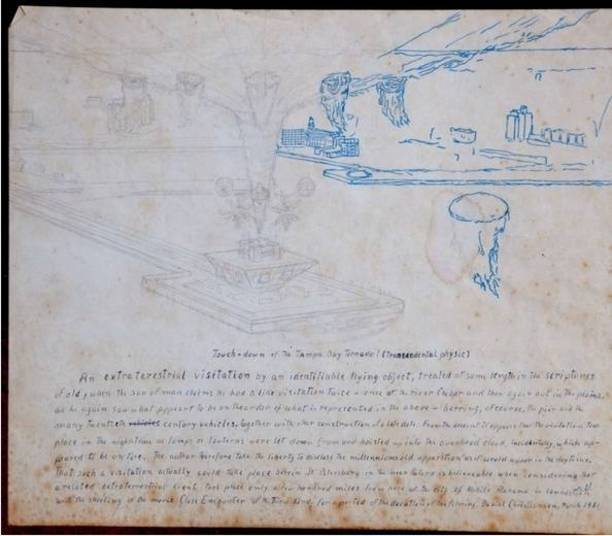 Touch-down of the Tampa Bay Tornado! (Transcendental physic)
An extraterestrial visitation by an identifiable flying object, treated at some length in the scriptures
of old, when the son of man claims he had a like visitation twice – once at the river Chebar and then again out in the plains,
as he again saw what appear to be on the order of what is represented in the above – barring, of course, the pier and the
many twentieth vehicles century vehicles, together with other construction of a late date. From the it appears that the visitation took
place in the nighttime as lamps or lanterns were let down from and hoisted up into the overhead cloud, incidentally, which ap-
peared to be on fire. The author therefore takes the liberty to disclose the millenniums old apparition as it would appear in the daytime.
That such a visitation actually could take place herein St. Petersburg in the near future is believable when considering that
a related extraterrestrial event took place only a few hundred miles from here at the City of Mobile Alabama in connection
with the shooting of the movie Close Encounter of the Third Kind, for a period of the duration of the filming. Daniel Christiansen, March 1981.